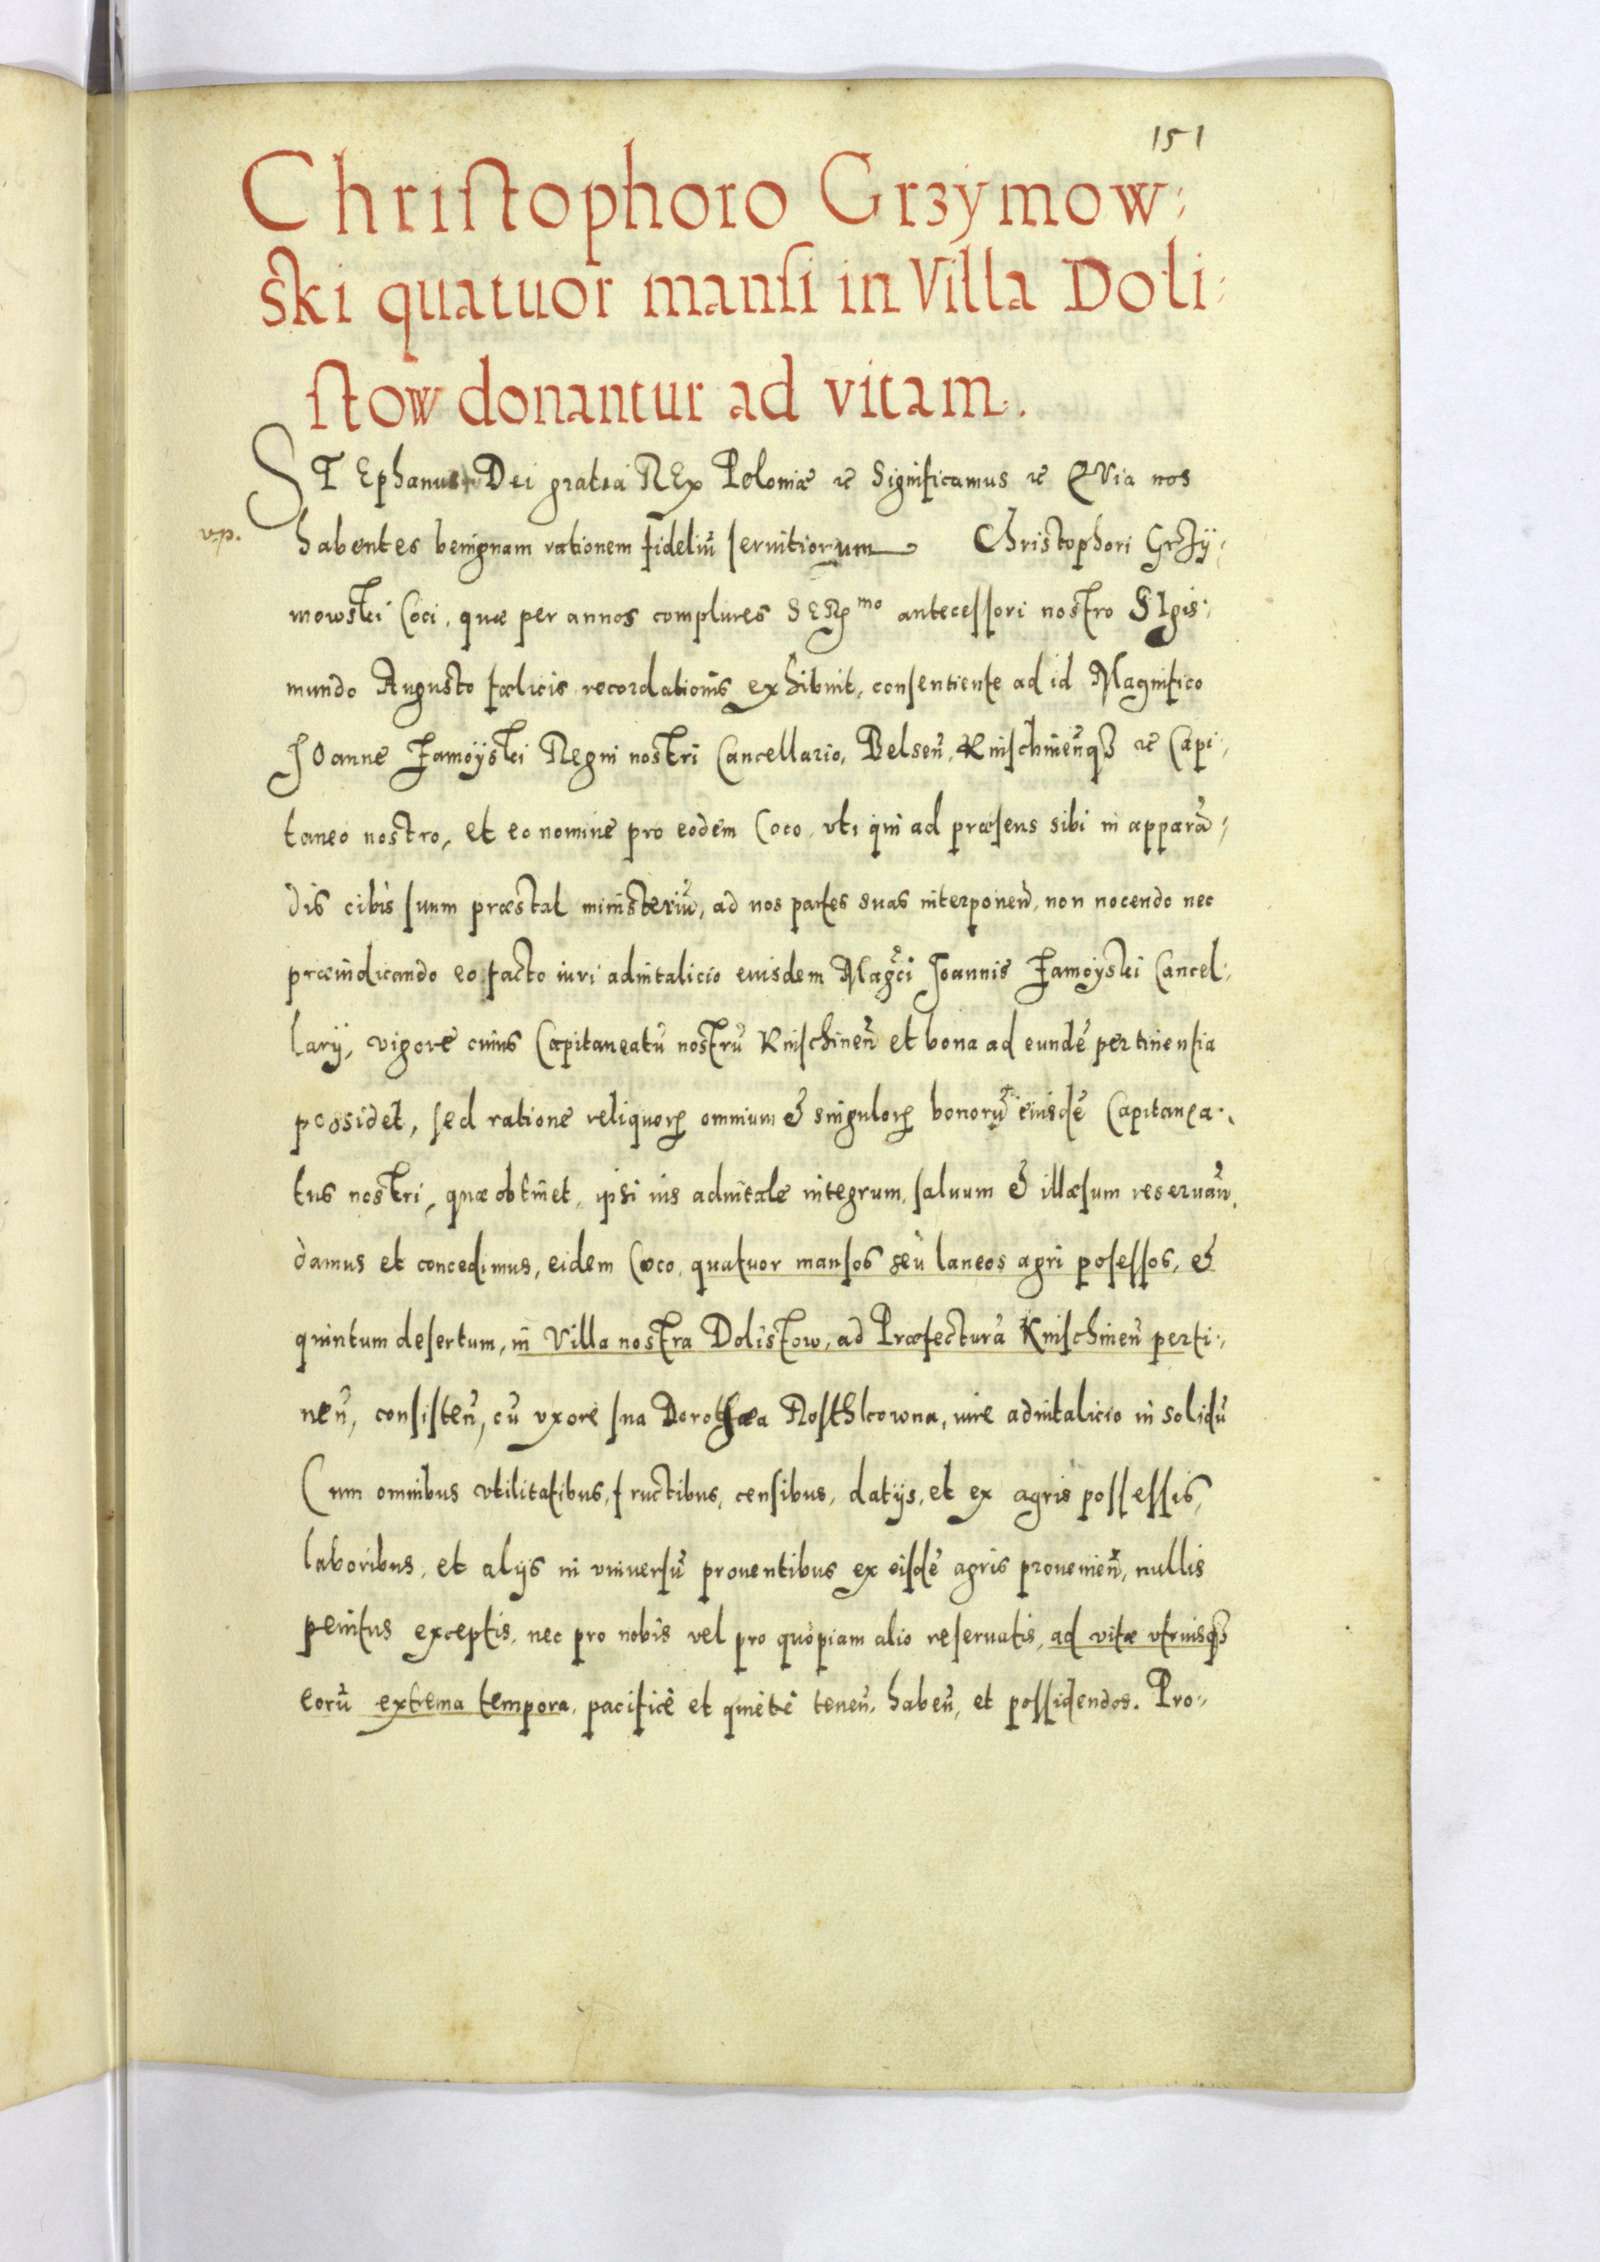 151
Christophoro Grzymow-
ski quatuor mansi in Villa Doli-
stow donantur ad vitam.
STEphanus Dei gratia REx Poloniæ etc Significamus etc QVia nos
v.p.
habentes benignam rationem fideliū seruitiorum Christophori Grzÿ-
mowski Coci, quæ per annos complures SERmo antecessori nostro SIgis-
mundo Augusto fœlicis recordationis exhibuit, consentiente ad id Magnifico
JOanne Zamoÿski Regni nostri Cancellario, Belseñ, Knischineñqȝ etc Capi-
taneo nostro, et eo nomine pro eodem Coco, vti qui ad præsens sibi in apparā-
dis cibis suum præstat ministeriū, ad nos partes suas interponeñ, non nocendo nec
præiudicando eo facto iuri aduitalicio eiusdem Magci Joannis Zamoÿski Cancel-
larÿ, vigore cuius Capitaneatū nostrū Knischineñ et bona ad eundē pertinentia
possidet, sed ratione reliquoꝝ omnium & singuloꝝ bonorū eiusdē Capitanea-
tus nostri, quæ obtinet, ipsi ius aduitale integrum, saluum & illæsum reseruañ,
damus et concedimus, eidem Coco, quatuor mansos seu laneos agri posessos, &
quintum desertum, in Villa nostra Dolistow, ad Præfecturā Knischineñ perti-
neñ, consisteñ, cū vxore sua Dorothæa Rosthkowna, iure aduitalicio in solidū
Cum omnibus vtilitatibus, fructibus, censibus, datÿs, et ex agris possessis,
laboribus, et alÿs in vniuersū prouentibus ex eisdē agris prouenieñ, nullis
penitus exceptis, nec pro nobis vel pro quopiam alio reseruatis, ad vitæ vtriusqȝ
eorū extrema tempora, pacificè et quietè teneñ, habeñ, et possidendos. Pro-